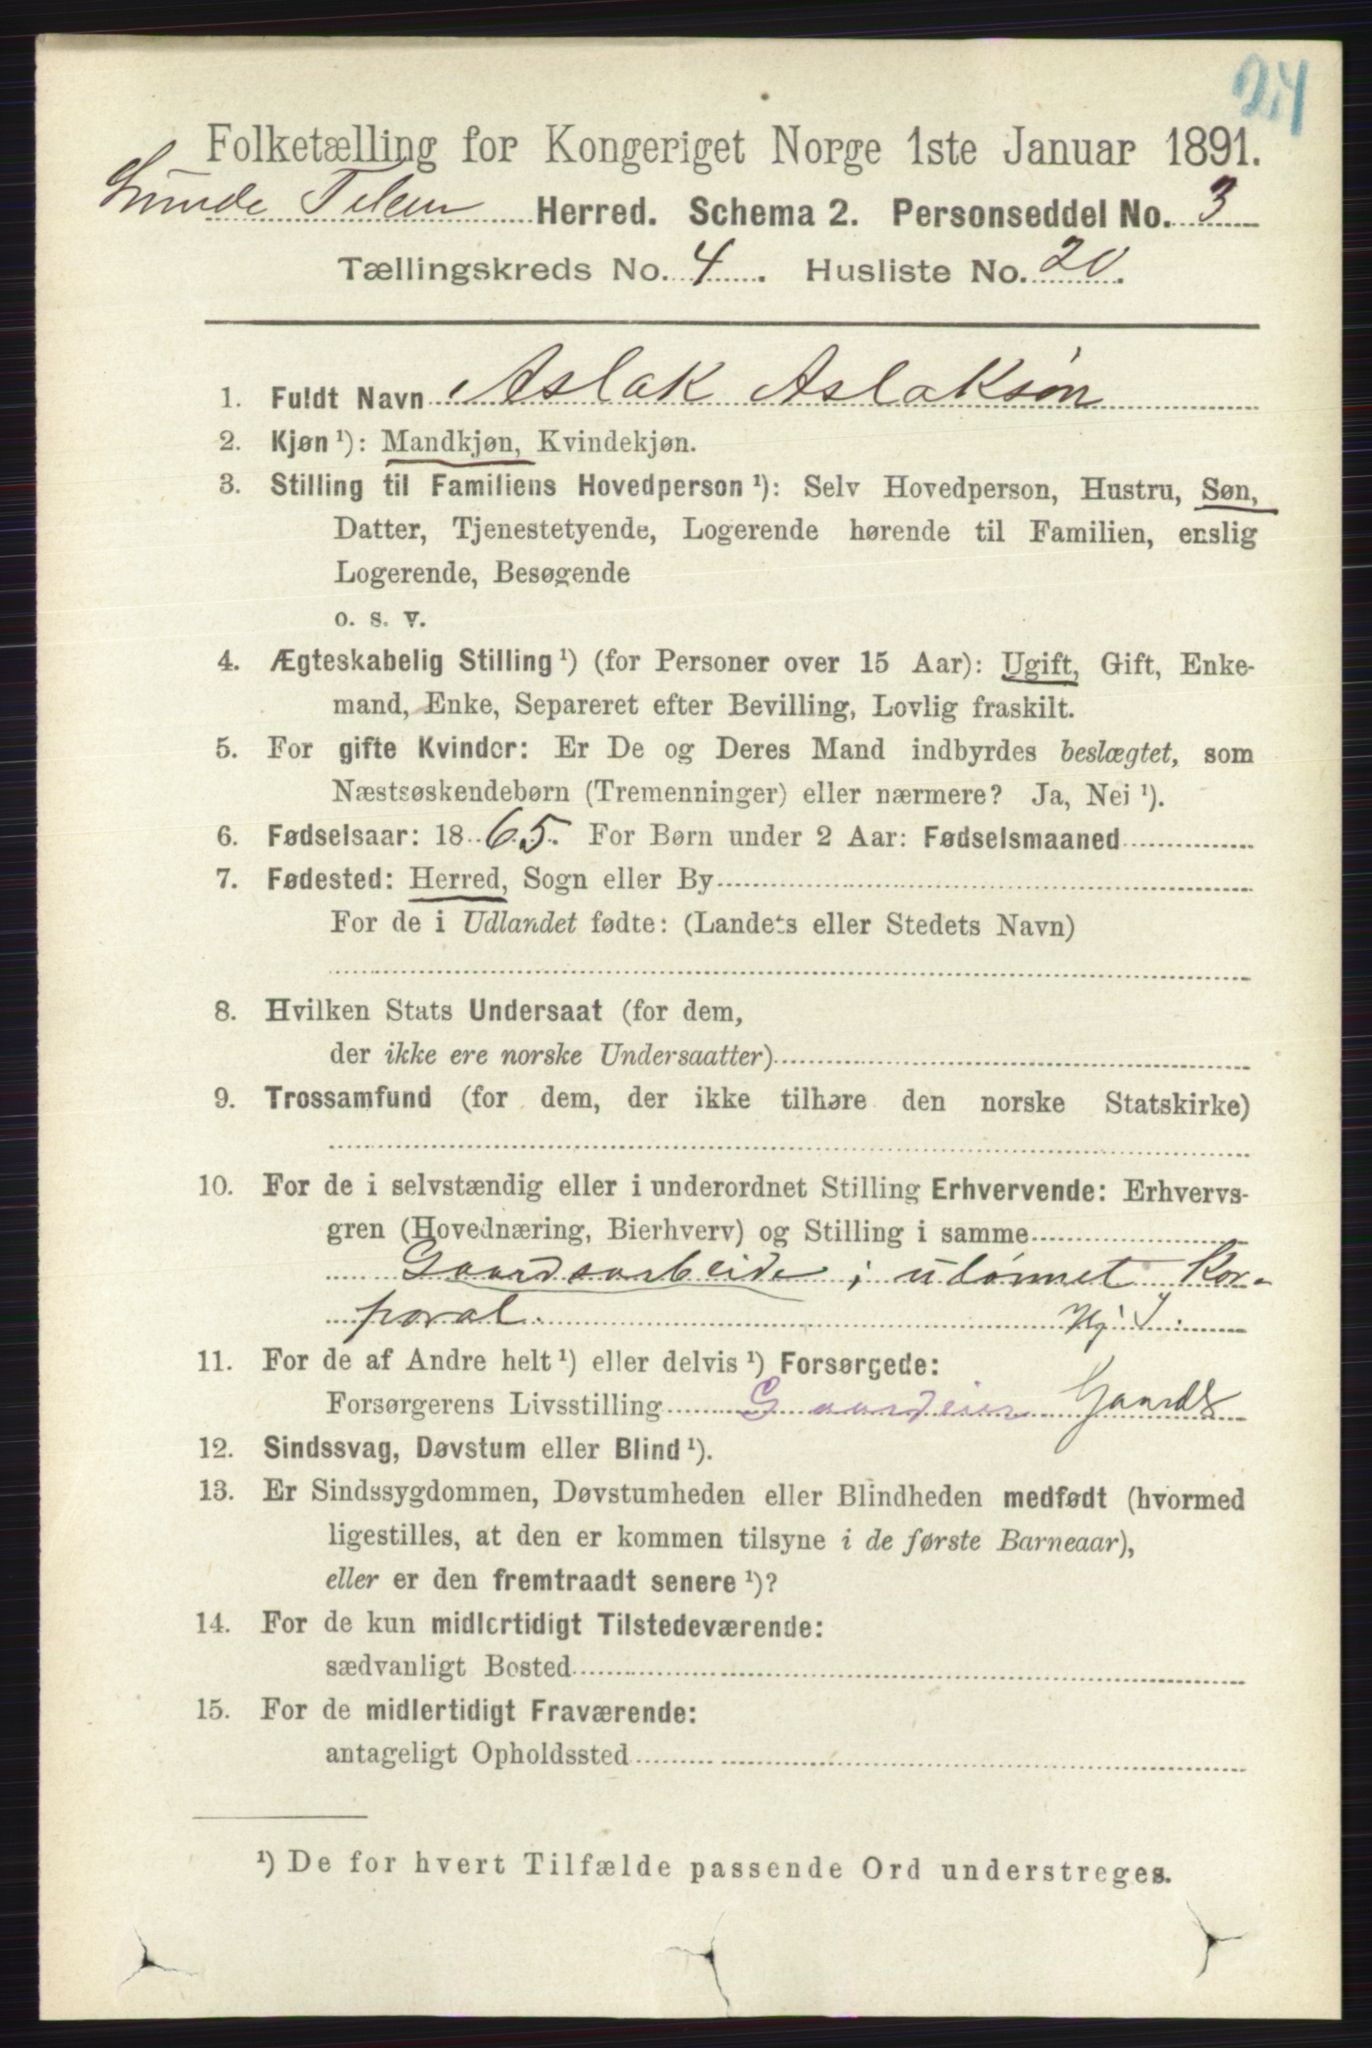 24
Folketælling for Kongeriget Norge 1ste Januar 1891.
Lunde Telem Herred. Schema 2. Personseddel No. 3
Tællingskreds No. 4. Husliste No. 20.
1. Fuldt Navn Aslak Aslaksøn
2. Kjøn ¹): Mandkjøn, Kvindekjøn.
3. Stilling til Familiens Hovedperson ¹): Selv Hovedperson, Hustru, Søn,
Datter, Tjenestetyende, Logerende hørende til Familien, enslig
Logerende, Besøgende
o. s. v.
4. Ægteskabelig Stilling ¹) (for Personer over 15 Aar): Ugift, Gift, Enke-
mand, Enke, Separeret efter Bevilling, Lovlig fraskilt.
5. For gifte Kvinder: Er De og Deres Mand indbyrdes beslægtet, som
Næstsøskendebørn (Tremenninger) eller nærmere? Ja, Nei ¹).
6. Fødselsaar: 1865. For Børn under 2 Aar: Fødselsmaaned
7. Fødested: Herred, Sogn eller By
For de i Udlandet fødte: (Landets eller Stedets Navn)
8. Hvilken Stats Undersaat (for dem,
der ikke ere norske Undersaatter)
9. Trossamfund (for dem, der ikke tilhøre den norske Statskirke)
10. For de i selvstændig eller i underordnet Stilling Erhvervende: Erhvervs-
gren (Hovednæring, Bierhverv) og Stilling i samme
Gaardsarbeide; ulønnet Kor-
poral.
11. For de af Andre helt ¹) eller delvis ¹) Forsørgede:
Forsørgerens Livsstilling Gaardeier Gaardb
12. Sindssvag, Døvstum eller Blind ¹).
13. Er Sindssygdommen, Døvstumheden eller Blindheden medfødt (hvormed
ligestilles, at den er kommen tilsyne i de første Barneaar),
eller er den fremtraadt senere ¹)?
14. For de kun midlertidigt Tilstedeværende:
sædvanligt Bosted
15. For de midlertidigt Fraværende:
antageligt Opholdssted
¹) De for hvert Tilfælde passende Ord understreges.